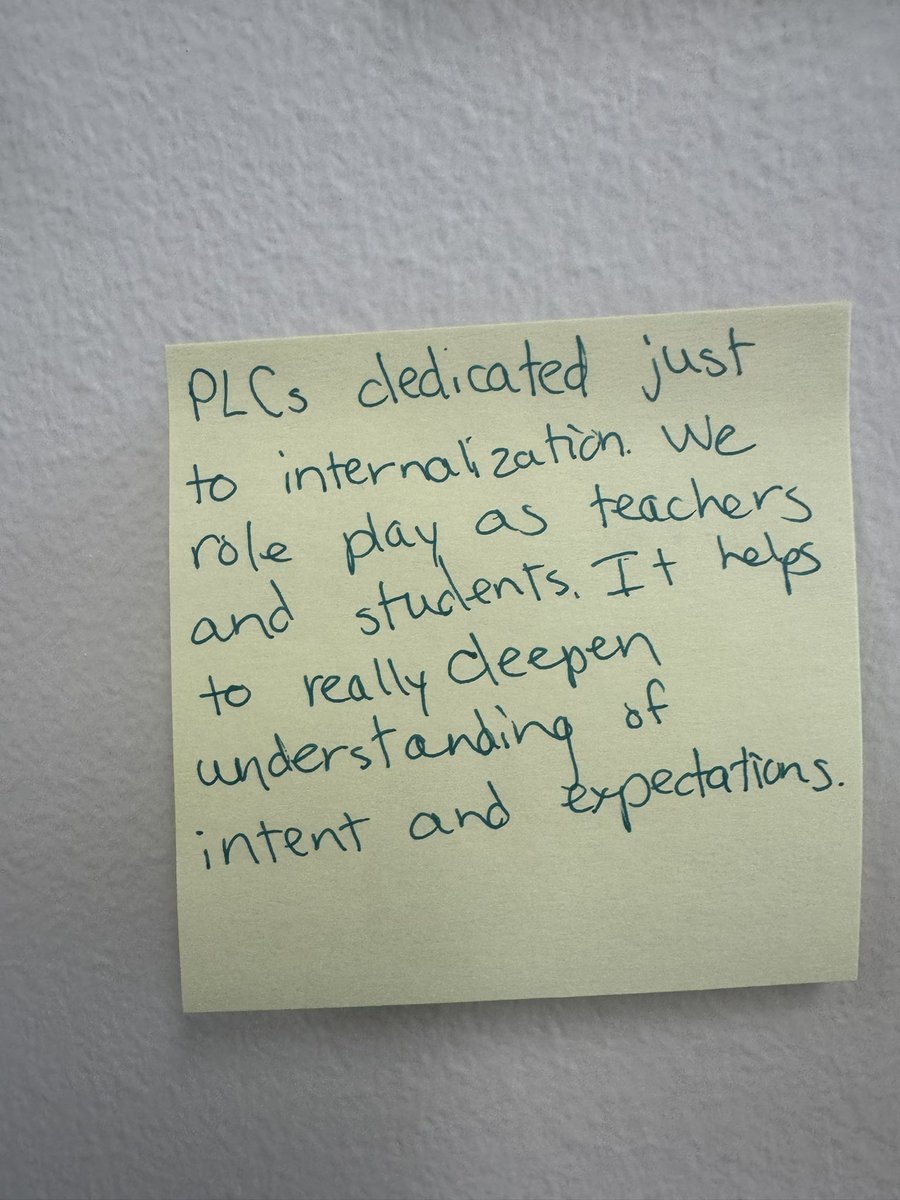 PLCs dedicated just
to internalization. We
role play as teachers
and students. It helps
to really deepen
understanding of
intent and expectations.